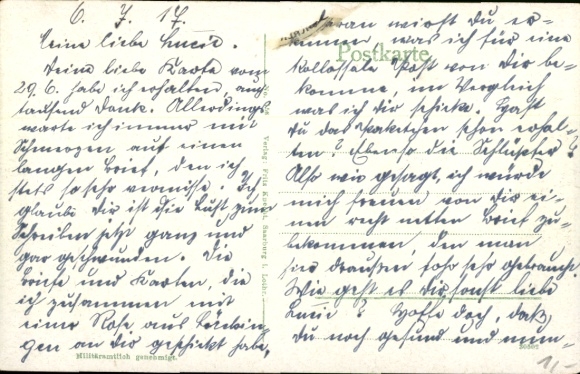 6. 7. 17.
Meine liebe Lucie.
Deine liebe Karte vom
29.6. habe ich erhalten,
tausend Dank. Allerdings
warte ich immer mit
Schmerzen auf einen
langen Brief, den ich
stets so sehr vermisse. Ich
glaube Dir ist die Lust zum
Schreiben jetzt ganz und
gar geschwunden. Die
Briefe und Karten, die
ich zusammen mit
einer Rose aus
gen an Dir geschickt habe,
Militäramtlich genehmigt.
Verlag Fritz Saarburg i. Lothr.
Postkarte
daran wirst Du er-
kennen was ich für eine
kollossale Post von Dir be-
komme, im Vergleich
was ich Dir schicke. Hast
Du das Paketchen schon erhal-
ten? Ebenso die Schlüssel?
Also wie gesagt, ich würde
mich freuen von Dir ei-
nen recht netten Brief zu-
bekommen, den man
hier draußen sehr gebraucht
Wie geht es Dir sonst liebe
Lucie? Hoffe doch, daß
Du noch gesund und mun-
1/-